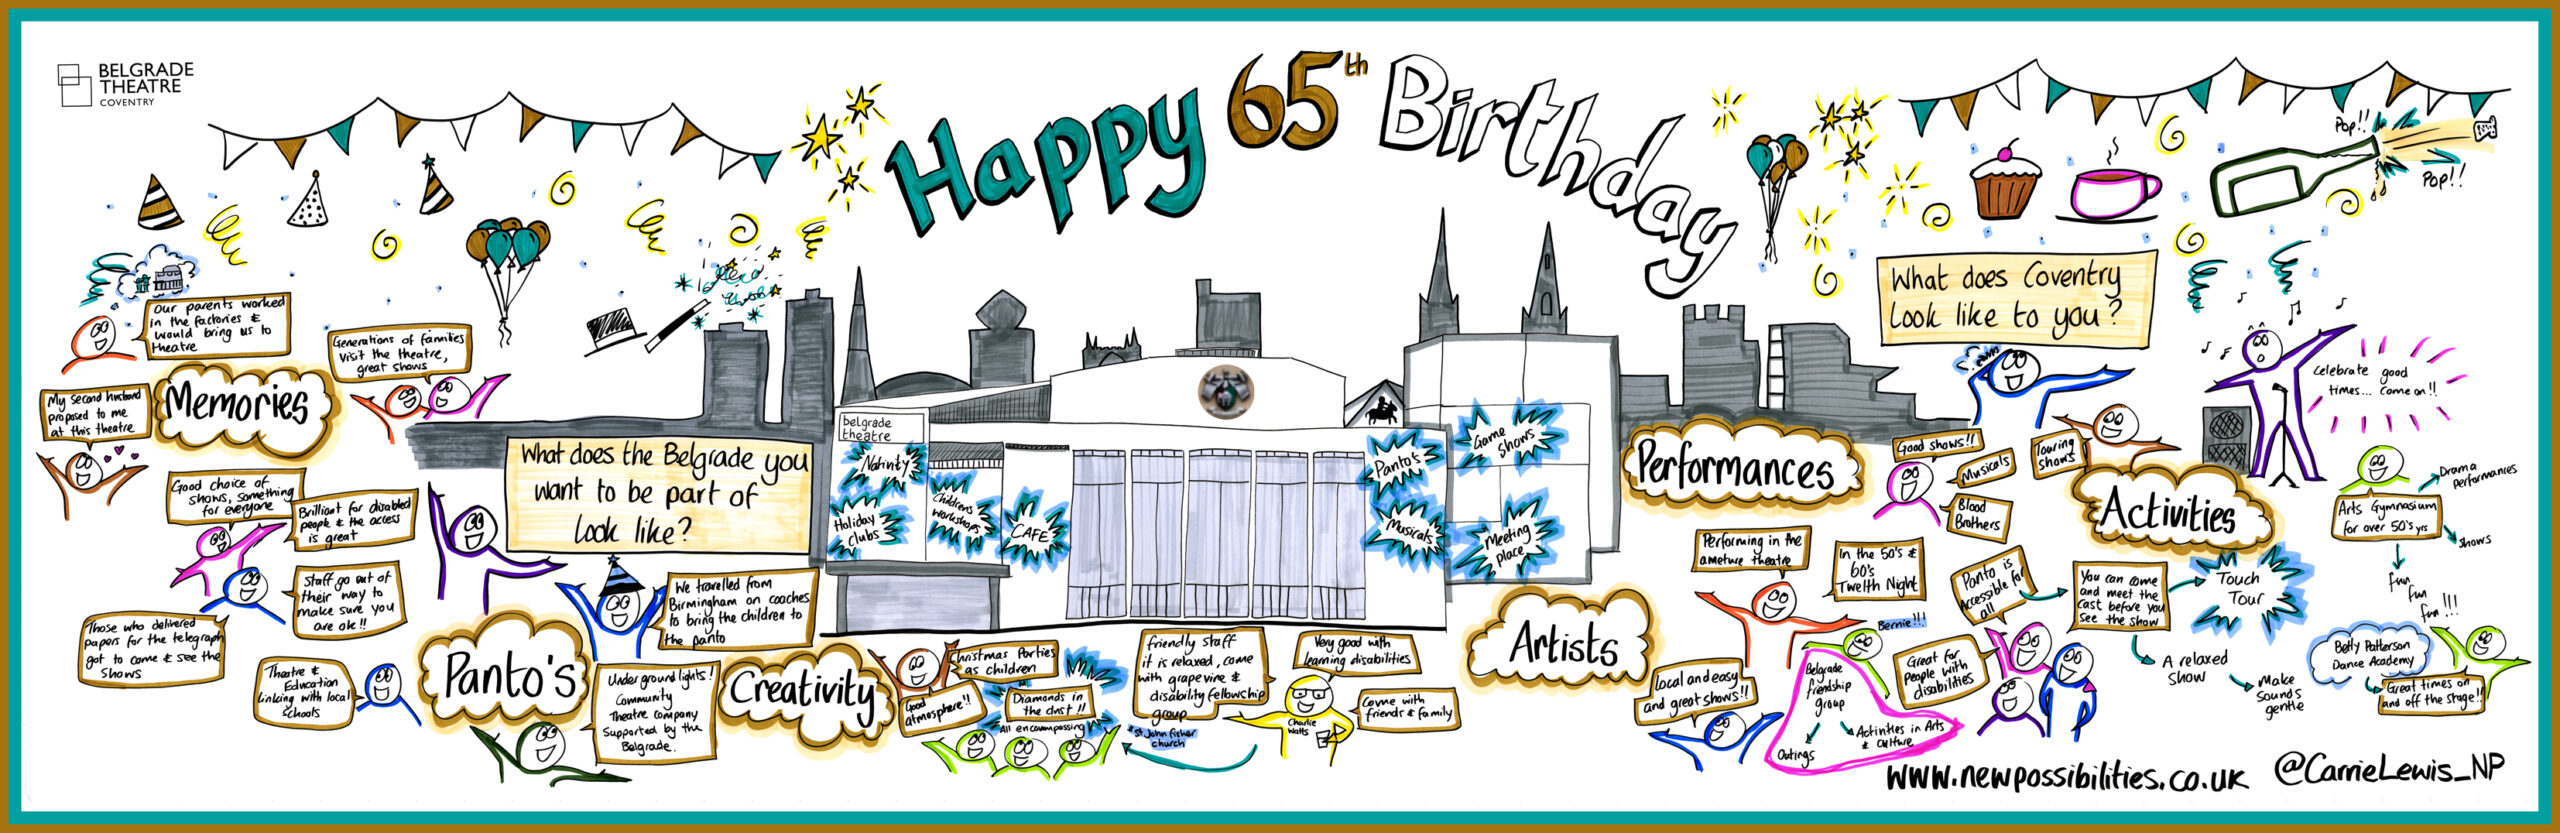 BELGRADE
THEATRE
COVENTRY
Happy 65th Birthday
Pop!!
Pop!!
Our parents worked
in the factories &
would bring us to
theatre
Generations of families
visit the theatre,
great shows
My second husband
proposed to me
at this theatre
Memories
Good choice of
shows, something
for everyone
Brilliant for disabled
people & the access
is great
Staff go out of
their way to
make sure you
are ok!!
Those who delivered
papers for the telegraph
got to come & see the
shows
Theatre &
Education
linking with local
schools
What does the Belgrade you
want to be part of
look like?
We travelled from
Birmingham on coaches
to bring the children to
the panto
Panto's
Underground lights!
Community
Theatre company
supported by the
Belgrade.
Creativity
belgrade
theatre
Nativity
Holiday
clubs
Childrens
workshops
CAFE
Panto's
Musicals
Game
shows
Meeting
place
Christmas Parties
as children
Good
atmosphere!!
Diamonds in
the dust!!
All encompassing
*St. John fisher
church
friendly staff
it is relaxed, come
with grapevine &
disability fellowship
group
Very good with
learning disabilities
Charlie
Watts
Come with
friends & family
Artists
Performances
What does Coventry
look like to you?
Good shows!!
Musicals
Blood
Brothers
Touring
shows
Activities
Celebrate good
times... come on!!
Performing in the
ameture theatre
In the 50's &
60's
Twelth Night
Bernie!!!
Local and easy
and great shows!!
Belgrade
friendship
group
Outings
Activities in Arts
& culture
Panto is
accessible for
all
Great for
people with
disabilities
You can come
and meet the
cast before you
see the show
Touch
Tour
A relaxed
show
Make
sounds
gentle
Arts Gymnasium
for over 50's yrs
Drama
performances
shows
fun
fun
fun!!!
Betty Patterson
Dance Academy
Great times on
and off the stage!!
www.newpossibilities.co.uk
@CarrieLewis_NP